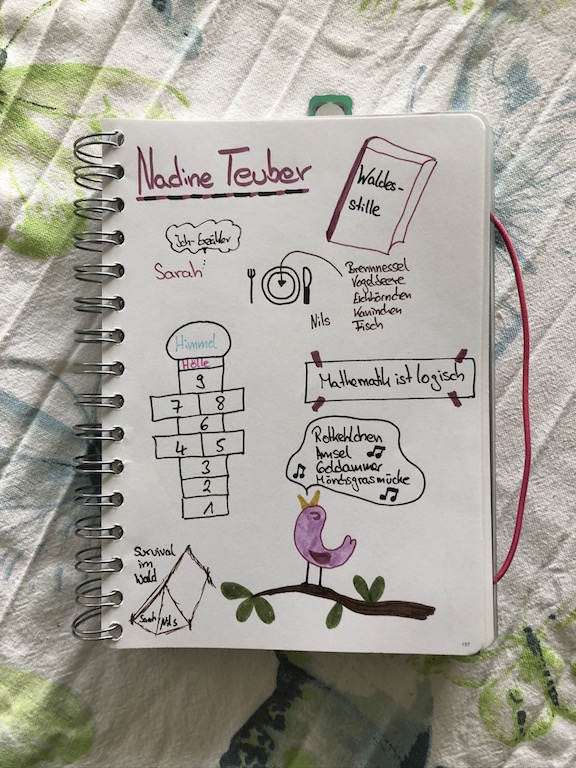 Nadine Teuber
Waldes-
stille
Ich-Erzähler
Sarah
Brennnessel
Vogelbeere
Eichhörnchen
Kaninchen
Fisch
Nils
Himmel
Hölle
9
7 8
6
4 5
3
2
1
Mathematik ist logisch
Rotkehlchen
Amsel
Goldammer
Mönchsgrasmücke
Survival
im
Wald
Sarah Nils
197